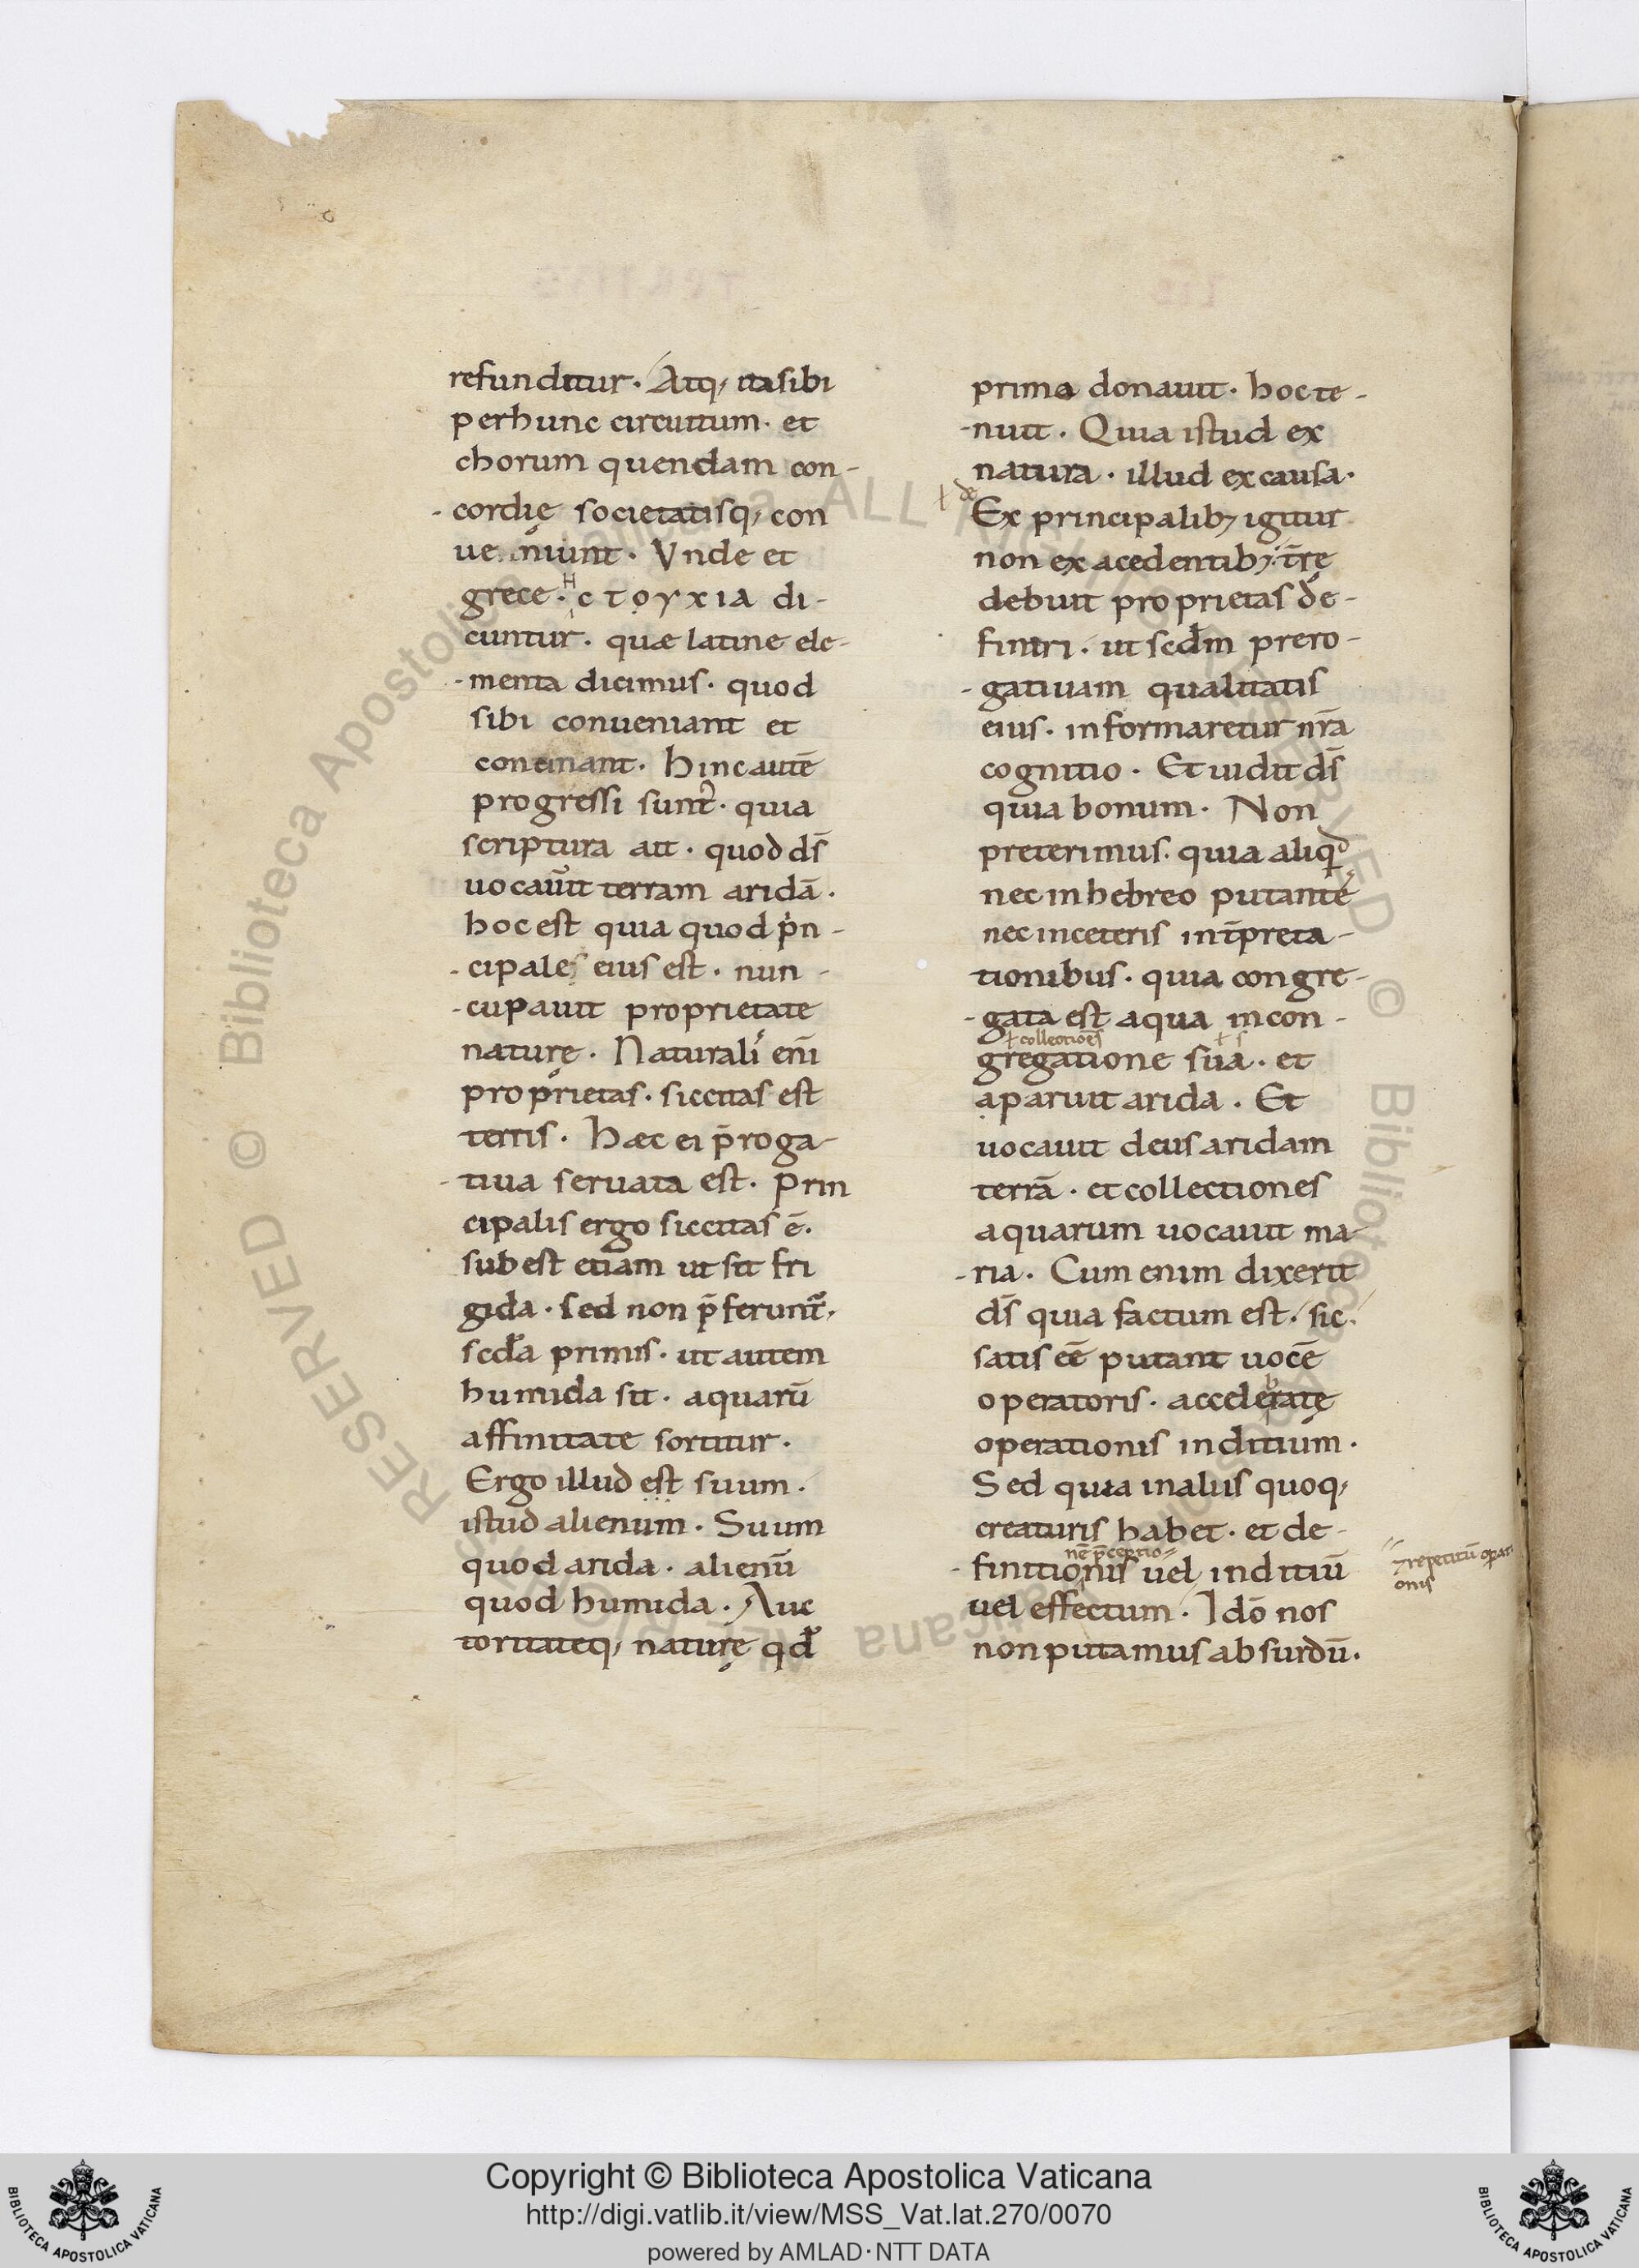 refunditur· Atq; ita sibi
per hunc circuitum· et
chorum quendam con-
-cordię societatisq; con
ueniunt· Vnde et
grece· H
cτoyxia di-
cuntur· quæ latine ele-
-menta dicimus· quod
sibi conueniant et
concinant· hinc autē
progressi sunt· quia
scriptura ait· quod d̄s
uocauit terram aridā·
hoc est quia quod p̍n-
-cipales eius est· nun-
-cupauit proprietate
naturę· Naturali eni̅
proprietas· siccitas est
terris· hæc ei p̄roga-
-tiua seruata est· prin
cipalis ergo siccitas ē·
subest etiam ut sit fri
gida· sed non p̄ferunt̃,
scd̄a primis· ut autem
humida sit· aquarū
affinitate sortitur·
Ergo illud est suum·
istud alienum· Suum
quod arida· alienū
quod humida· Auc
toritateq; naturę qd̄
prima donauit· hoc te-
-nuit· Quia istud ex
natura· illud ex causa·
Ex principalib; igitur
non ex acedentib; t̄rę
debuit proprietas de-
finiri· ut scdm̄ prero-
-gatiuam qualitatis
eius· informaretur nr̄a
cognitio· Et uidit d̄s
quia bonum· Non
preterimus· quia aliqd
nec in hebreo putant eē
nec in ceteris int̄preta-
tionibus· quia congre-
-gata est aqua in con-
ł collectiones ł s
gregatione sua· et
aparuit arida· Et
uocauit deus aridam
terrā· et collectiones
aquarum uocauit ma-
-ria· Cum enim dixerit
d̄s quia factum est· sic·
satis eē putant uocē
operatoris· acceleratę
operationis inditium·
Sed quia in aliis quoq;
creaturis habet· et de-
nē p̄ceptio
-finitionis uel inditiū
⁊ repetitū operati
onis
uel effectum· Idō nos
non putamus absurdū·
Copyright © Biblioteca Apostolica Vaticana
http://digi.vatlib.it/view/MSS_Vat.lat.270/0070
powered by AMLAD·NTT DATA
BIBLIOTECA APOSTOLICA VATICANA
BIBLIOTECA APOSTOLICA VATICANA